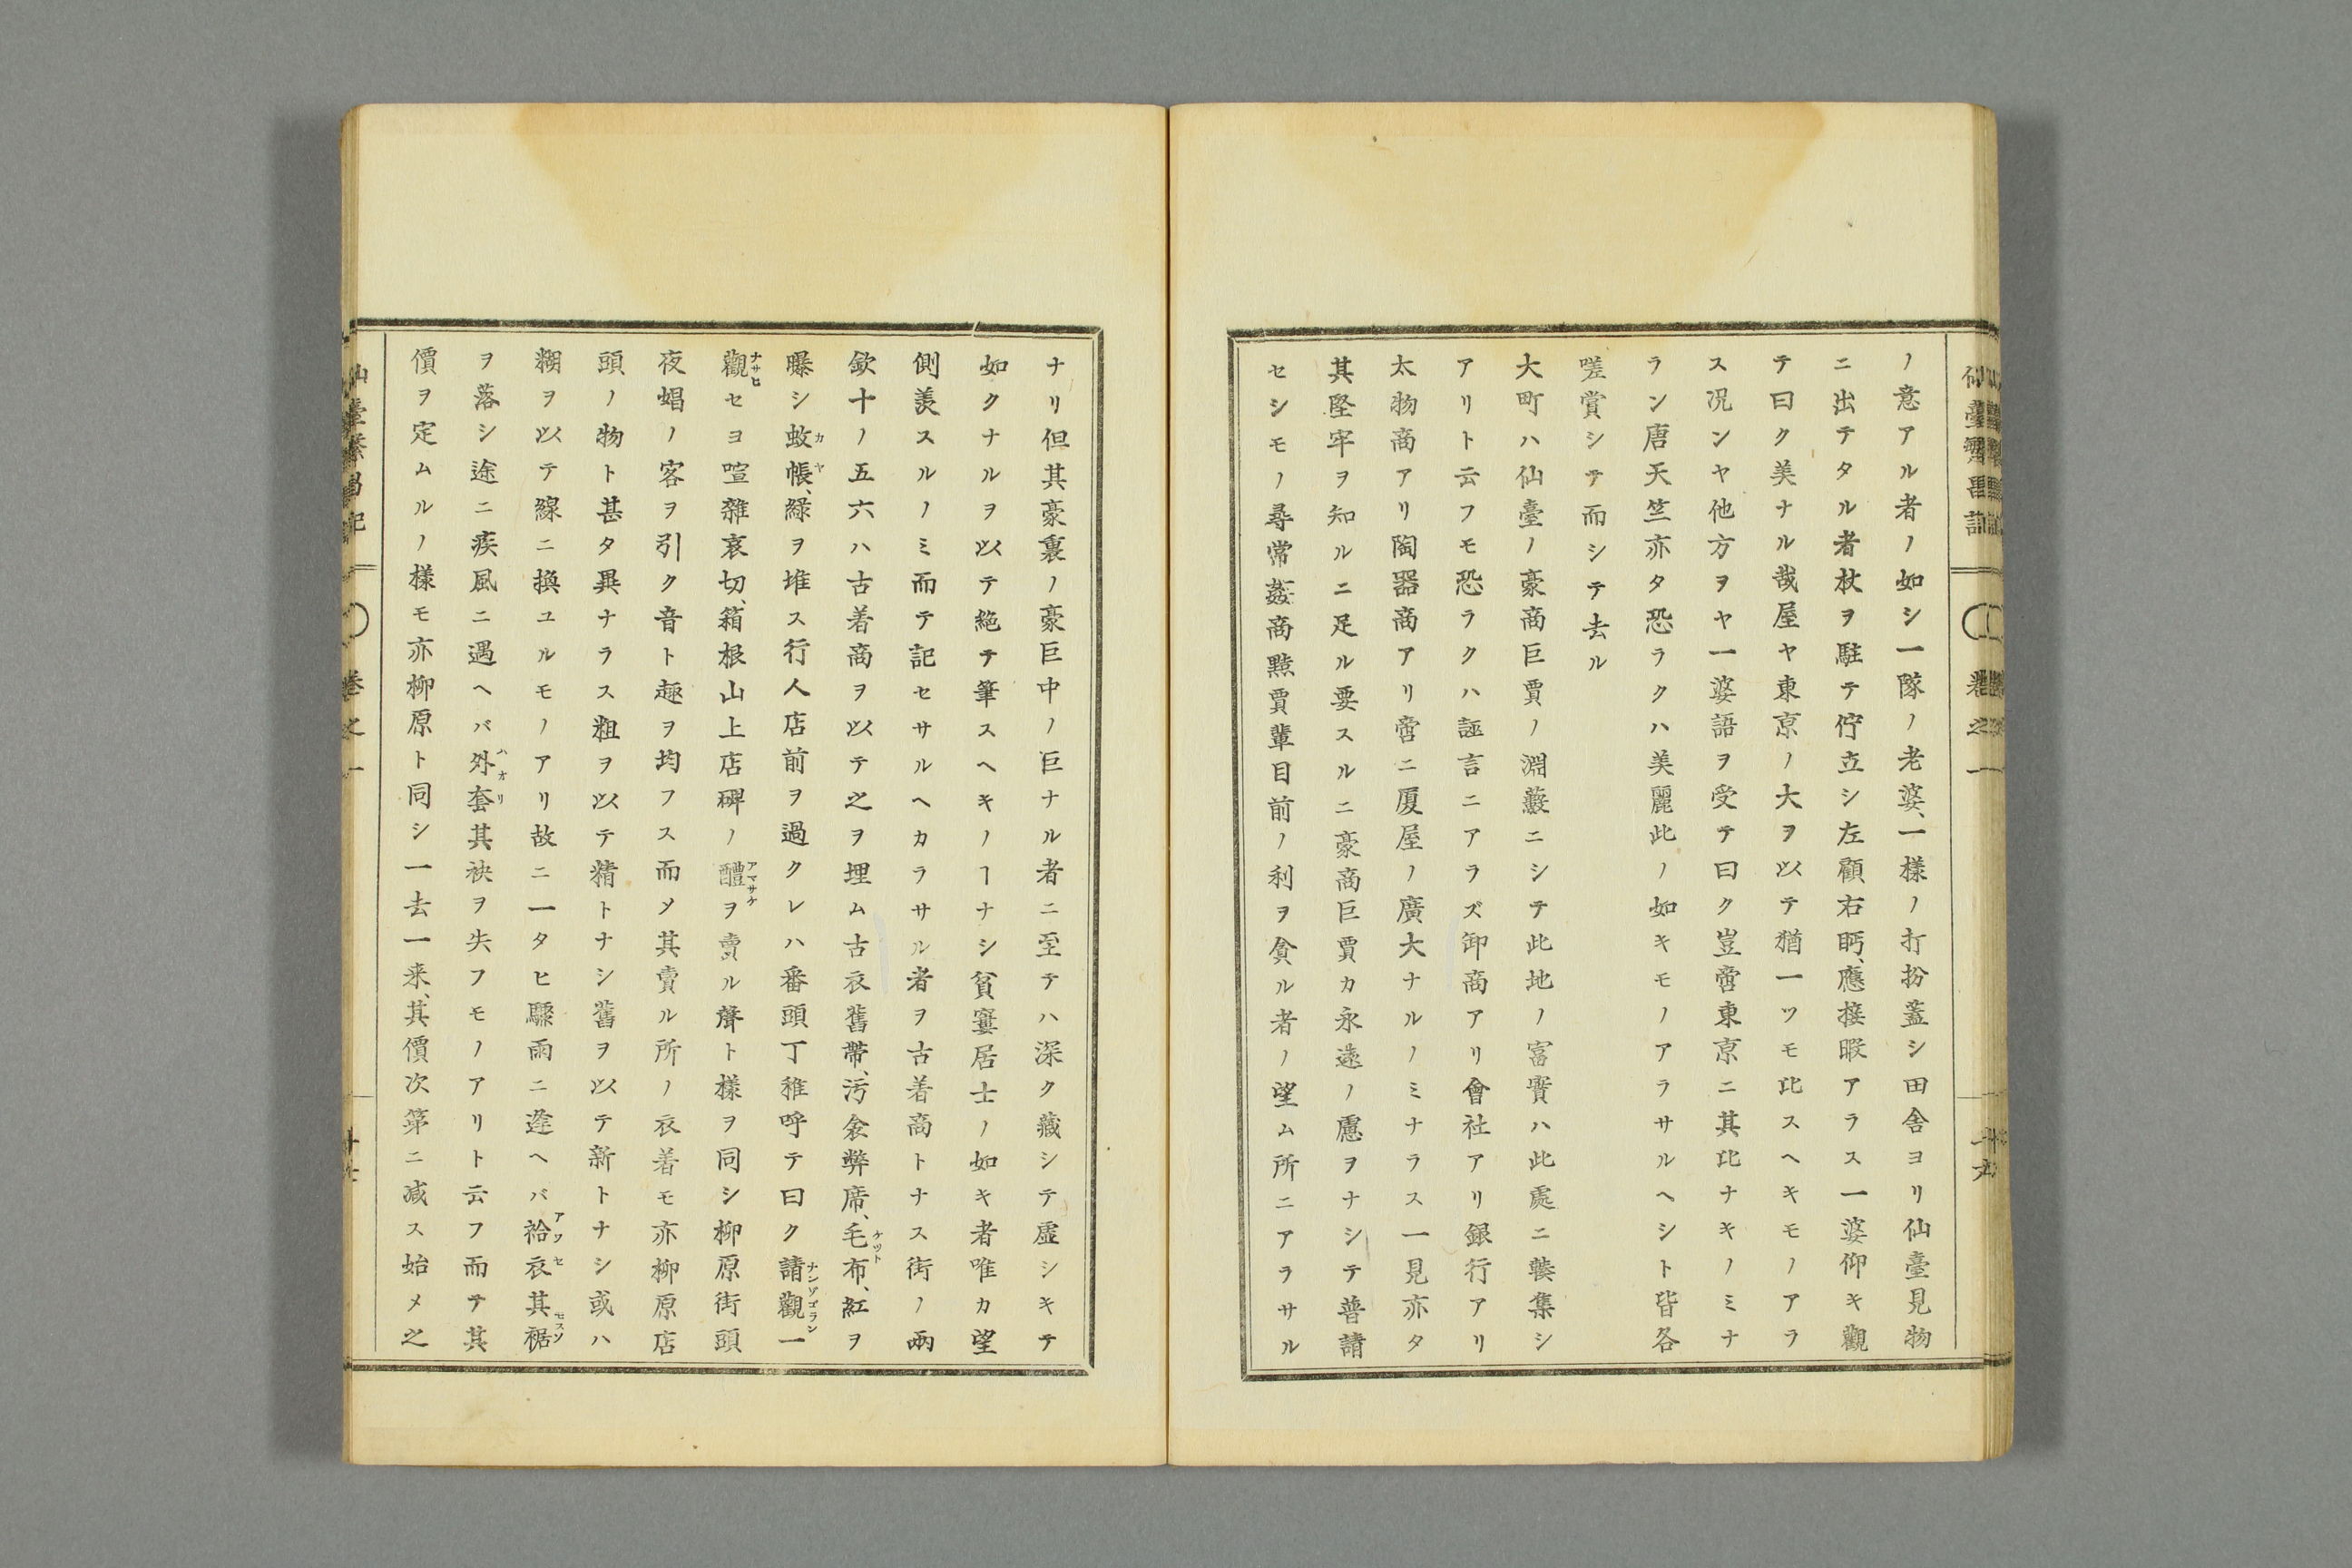 ノ意アル者ノ如シ一隊ノ老婆、一様ノ打扮蓋シ田舎ヨリ仙臺見物
ニ出テタル者杖ヲ駐テ佇立シ左顧右眄、應接暇アラス一婆仰キ觀
テ曰ク美ナル哉屋ヤ東京ノ大ヲ以テ猶一ツモ比スヘキモノアラ
ス况ンヤ他方ヲヤ一婆語ヲ受テ曰ク豈啻東京ニ其比ナキノミナ
ラン唐天竺亦タ恐ラクハ美麗此ノ如キモノアラサルヘシト皆各
嗟賞シテ而シテ去ル
大町ハ仙臺ノ豪商巨賈ノ淵藪ニシテ此地ノ富實ハ此處ニ輳集シ
アリト云フモ恐ラクハ誣言ニアラズ卸商アリ會社アリ銀行アリ
太物商アリ陶器商アリ啻ニ厦屋ノ廣大ナルノミナラス一見亦タ
其堅牢ヲ知ルニ足ル要スルニ豪商巨賈カ永遠ノ慮ヲナシテ普請
セシモノノ尋常姦商黠賈輩目前ノ利ヲ貪ル者ノ望ム所ニアラサル
ナリ但其豪裏ノ豪巨中ノ巨ナル者ニ至テハ深ク藏シテ虚シキテ
如クナルヲ以テ絶テ筆スヘキノヿナシ貧窶居士ノ如キ者唯カ望
側羨スルノミ而テ記セサルヘカラサル者ヲ古着商トナス街ノ両
欽十ノ五六ハ古着商ヲ以テ之ヲ埋ム古衣舊帶、汚衾弊席、毛布、紅ヲ
曝シ蚊帳、緑ヲ堆ス行人店前ヲ過クレハ番頭丁稚呼テ曰ク請觀一
觀セヨ喧雜哀切、箱根山上店碑ノ醴ヲ賣ル聲ト様ヲ同シ柳原街頭
夜娼ノ客ヲ引ク音ト趣ヲ均フス而メ其賣ル所ノ衣着モ亦柳原店
頭ノ物ト甚タ異ナラス粗ヲ以テ精トナシ舊ヲ以テ新トナシ或ハ
糊ヲ以テ線ニ換ユルモノアリ故ニ一タヒ驟雨ニ逢ヘバ袷衣其裾
ヲ落シ途ニ疾風ニ遇ヘバ外套其袂ヲ失フモノアリト云フ而テ其
價ヲ定ムルノ様モ亦柳原ト同シ一去一来、其價次第ニ减ス始メ之